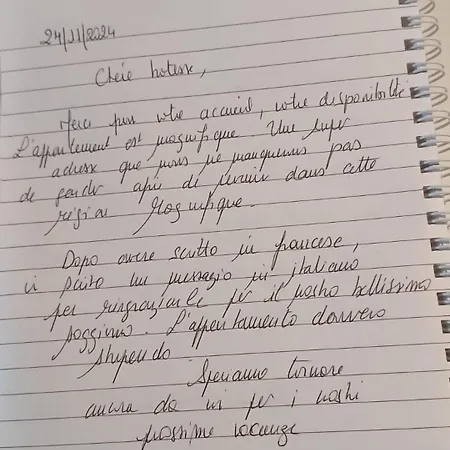 24/11/2024
Chère hotesse,
Merci pour votre accueil, votre disponibilité
L'appartement est magnifique. Une super
adresse que nous ne manquerons pas
de garder afin de revenir dans cette
région magnifique.
Dopo avere scritto in francese,
vi scrito un messagio in italiano
per ringraziarle per il nostro bellissimo
soggiorno. L'appartamento davvero
stupendo
Speriamo tornare
ancora da voi per i nostri
prossime vacanze